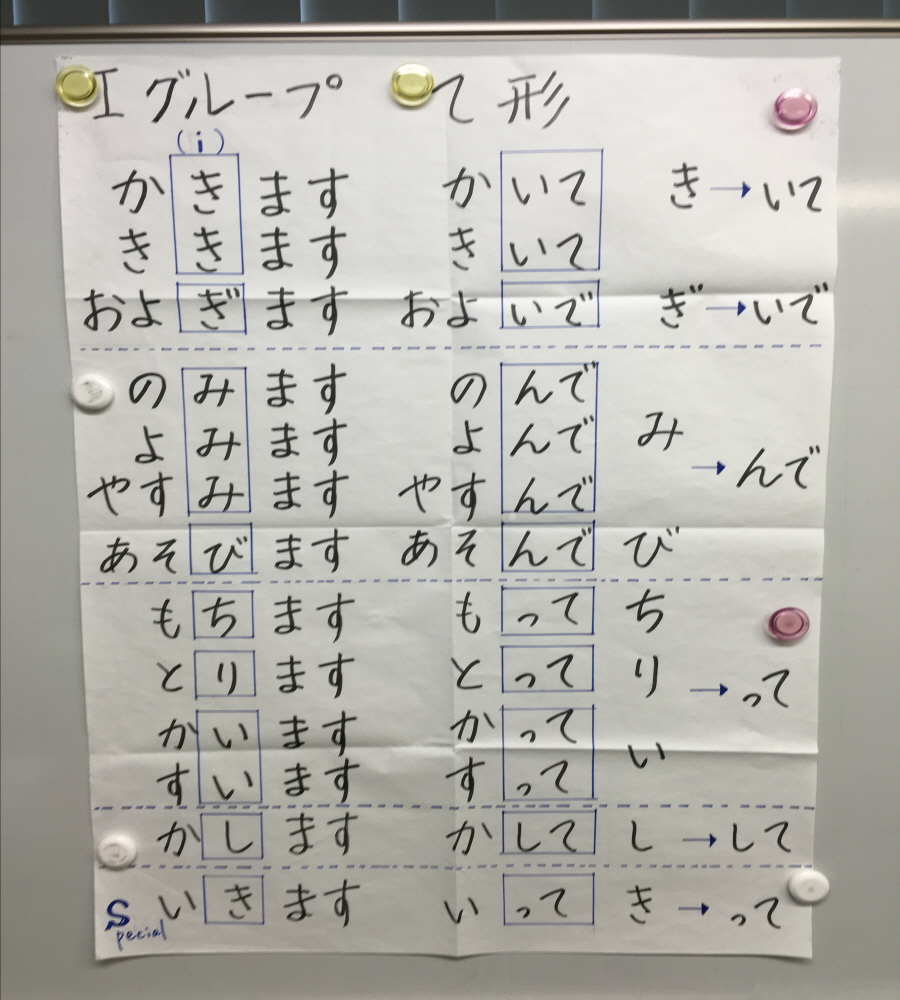 I グループ て 形
(i)
か き ます か いて き → いて
き き ます き いて
およ ぎ ます およ いで ぎ → いで
の み ます の んで み
よ み ます よ んで → んで
やす み ます やす んで
あそ び ます あそ んで び
も ち ます も って ち
と り ます と って り → って
か い ます か って い
す い ます す って
か し ます か して し → して
Special い き ます い って き → って